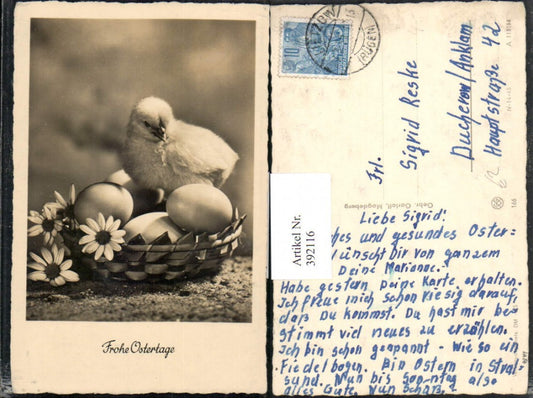 Frohe Ostertage
Frl.
Sigrid Reske
Ducherow/Anklam
Hauptstraße 42
Gebr. Garloff, Magdeburg
166
Artikel Nr.
392116
Liebe Sigrid!
und gesundes Oster=
wünscht Dir von ganzem
Deine Marianne.
Habe gestern Deine Karte erhalten.
Ich freue mich schon riesig darauf,
daß Du kommst. Du hast mir be
stimmt viel neues zu erzählen.
Ich bin schon gespannt - wie so ein
Fiedelbogen. Bin Ostern in Stral
sund. Nun bis sonntag also
alles Gute. Nun Schatz?